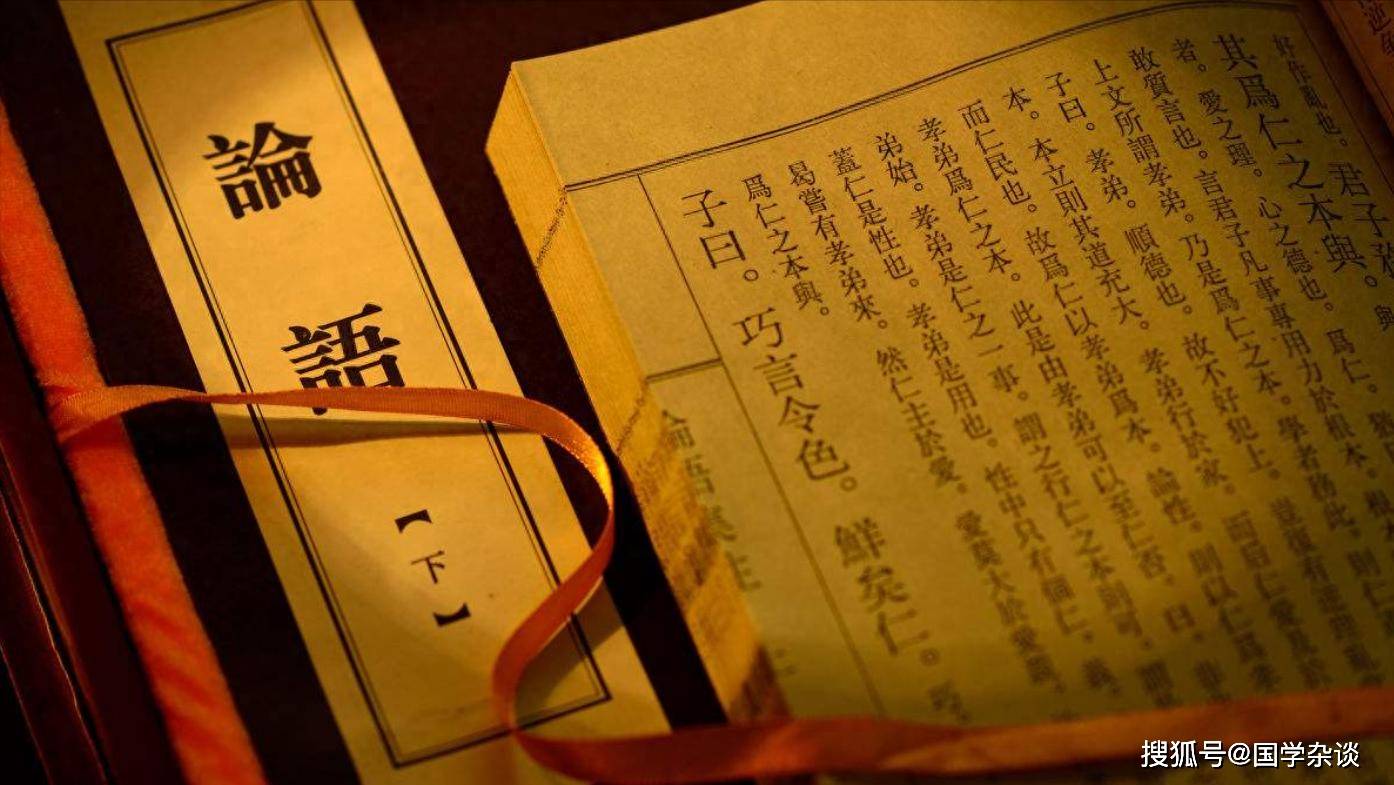 論語
【下】
好作亂也。君子
其爲仁之本與。
者。愛之理。心之德也。爲仁。猶
敢質言也。言君子凡事專用力於根本。根
上文所謂孝弟。乃是爲仁之本。學者務此。則仁
子曰。孝弟。順德也。故不好犯上。豈復有逆理亂
本。本立則其道充大。孝弟行於家。而后仁愛
而仁民也。故爲仁以孝弟爲本。論性。則以仁爲孝
孝弟爲仁之本。此是由孝弟可以至仁否。曰。非
弟始。孝弟是仁之一事。謂之行仁之本則可。謂
蓋仁是性也。孝弟是用也。性中只有個仁。義。
曷嘗有孝弟來。然仁主於愛。愛莫大於愛親。
爲仁之本與。
子曰。巧言令色。鮮矣仁。巧
搜狐号@国学杂谈